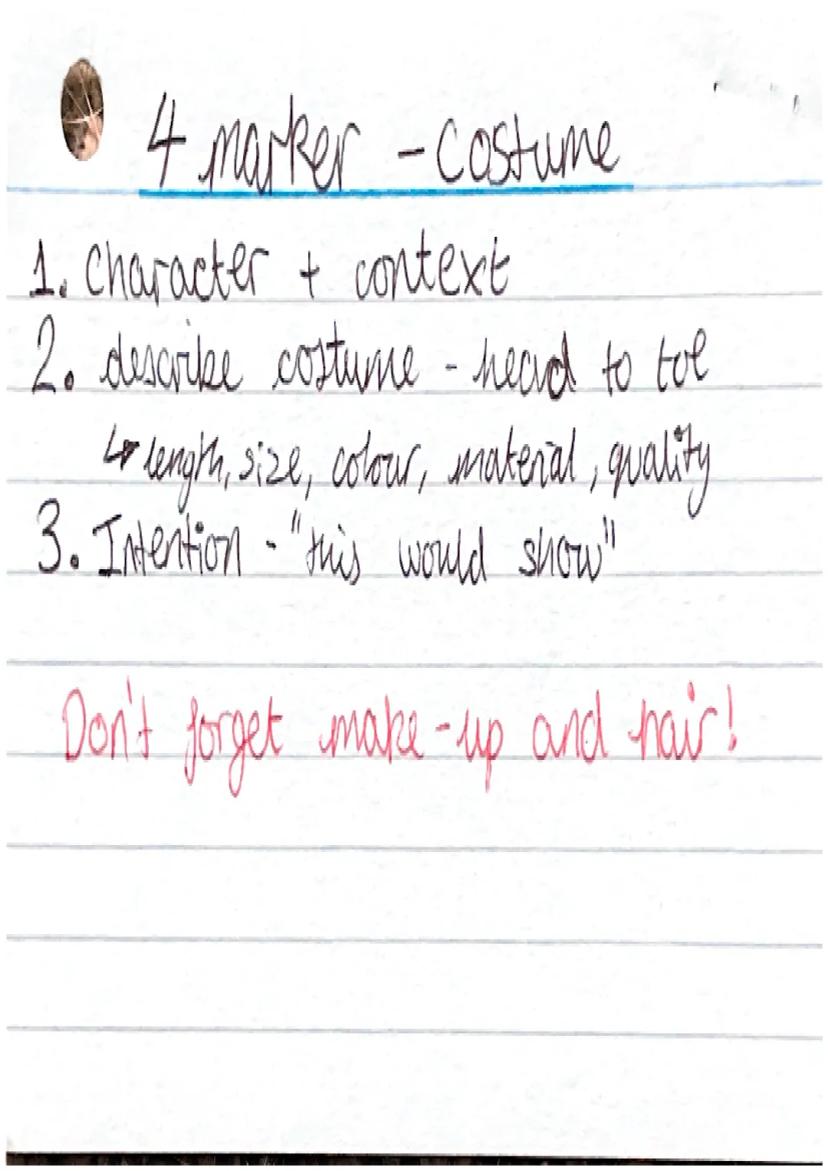 4 marker - costume
1. Character + context
2. describe costume - head to toe
↳ length, size, colour, material, quality
3. Intention - "this would show"
Don't forget make-up and hair!